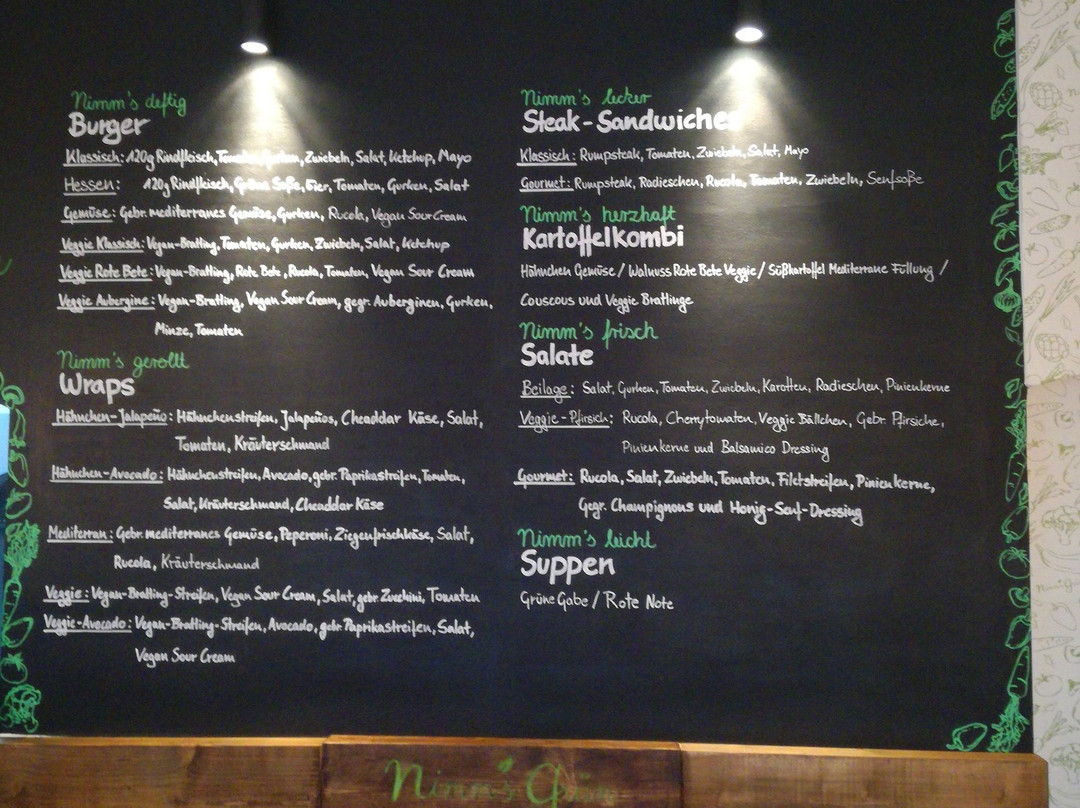 Nimm's deftig
Burger
Klassisch: 120g Rindfleisch, Tomaten, Gurken, Zwiebeln, Salat, Ketchup, Mayo
Hessen: 120g Rindfleisch, Grüne Soße, Eier, Tomaten, Gurken, Salat
Gemüse: Gebr. mediterranes Gemüse, Gurken, Rucola, Vegan Sour Cream
Veggie Klassisch: Vegan-Bratling, Tomaten, Gurken, Zwiebeln, Salat, Ketchup
Veggie Rote Bete: Vegan-Bratling, Rote Bete, Rucola, Tomaten, Vegan Sour Cream
Veggie Aubergine: Vegan-Bratling, Vegan Sour Cream, gegr. Auberginen, Gurken,
Minze, Tomaten
Nimm's gerollt
Wraps
Hähnchen-Jalapeño: Hähnchenstreifen, Jalapeños, Cheaddar Käse, Salat,
Tomaten, Kräuterschmand
Hähnchen-Avocado: Hähnchenstreifen, Avocado, gebr. Paprikastreifen, Tomaten,
Salat, Kräuterschmand, Cheaddar Käse
Mediterran: Gebr. mediterranes Gemüse, Peperoni, Ziegenfrischkäse, Salat,
Rucola, Kräuterschmand
Veggie: Vegan-Bratling-Streifen, Vegan Sour Cream, Salat, gebr. Zucchini, Tomaten
Veggie-Avocado: Vegan-Bratling-Streifen, Avocado, gebr. Paprikastreifen, Salat,
Vegan Sour Cream
Nimm's lecker
Steak-Sandwiches
Klassisch: Rumpsteak, Tomaten, Zwiebeln, Salat, Mayo
Gourmet: Rumpsteak, Radieschen, Rucola, Tomaten, Zwiebeln, Senfsoße
Nimm's herzhaft
Kartoffelkombi
Hähnchen Gemüse / Walnuss Rote Bete Veggie / Süßkartoffel Mediterrane Füllung /
Couscous und Veggie Bratlinge
Nimm's frisch
Salate
Beilage: Salat, Gurken, Tomaten, Zwiebeln, Karotten, Radieschen, Pinienkerne
Veggie-Pfirsich: Rucola, Cherrytomaten, Veggie Bällchen, Gebr. Pfirsiche,
Pinienkerne und Balsamico Dressing
Gourmet: Rucola, Salat, Zwiebeln, Tomaten, Filetstreifen, Pinienkerne,
Gegr. Champignons und Honig-Senf-Dressing
Nimm's leicht
Suppen
Grüne Gabe / Rote Note
Nimm's Grün